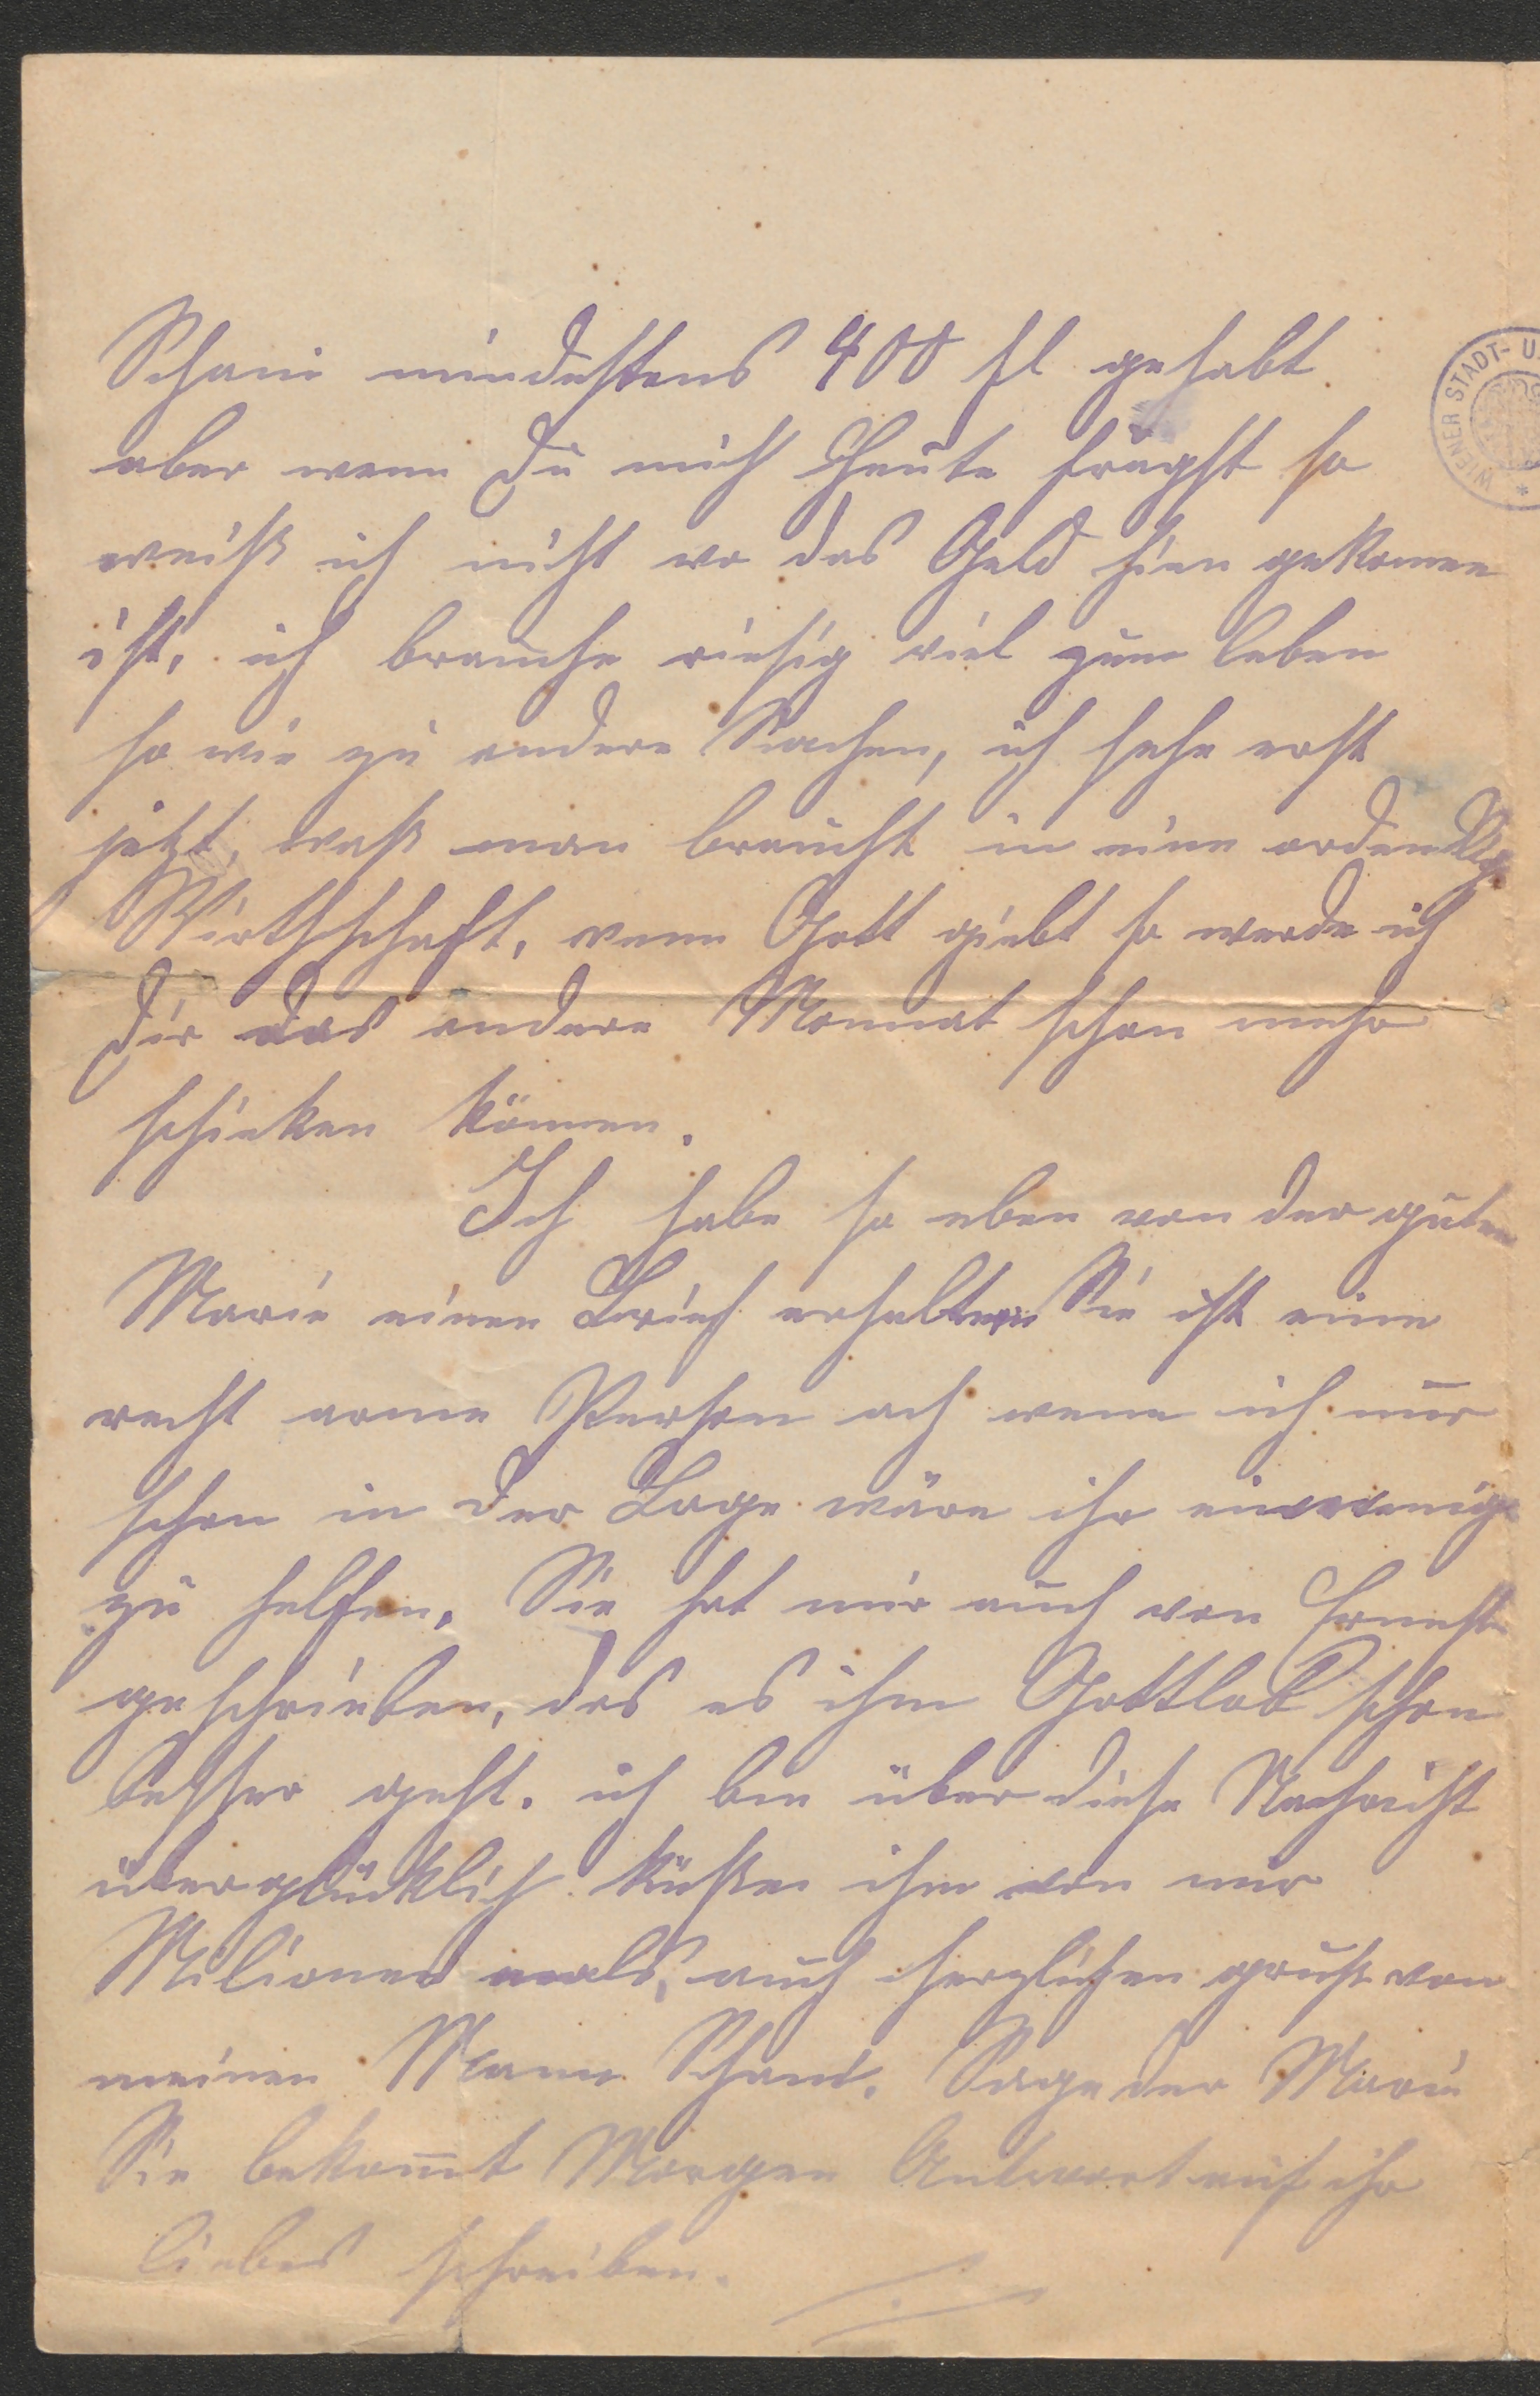 Schani mindestens 400 fl gehabt
aber wenn Du mich Heute frägst so
weiß ich nicht wo das Geld hien gekomen
ist, ich brauche riesig viel zum leben
so wie zu andere Sachen, ich sehe erst
jetzt, waß man braucht in eine ordentlig
Wirthschaft, wenn Gott giebt so werde ich
Dir das andere Monnat schon mehr
schicken können.
Ich habe so eben von der guten
Marie einen Brief erhalten Sie ist eine
recht arme Person ach wenn ich nur
schon in der Lage wäre ihr einwenig
zu helfen. Sie hat mir auch von Ernest
geschrieben, das es ihm Gottlob schon
besser geht. ich bin über diese Nachricht
überglücklich küße ihm von mir
Milionen mals, auch herzlichen gruß von
meinen Mann Schani. Sage der Marie
Sie bekom̅t Morgen Antwort auf ihr
liebes schreiben.
WIENER STADT- U